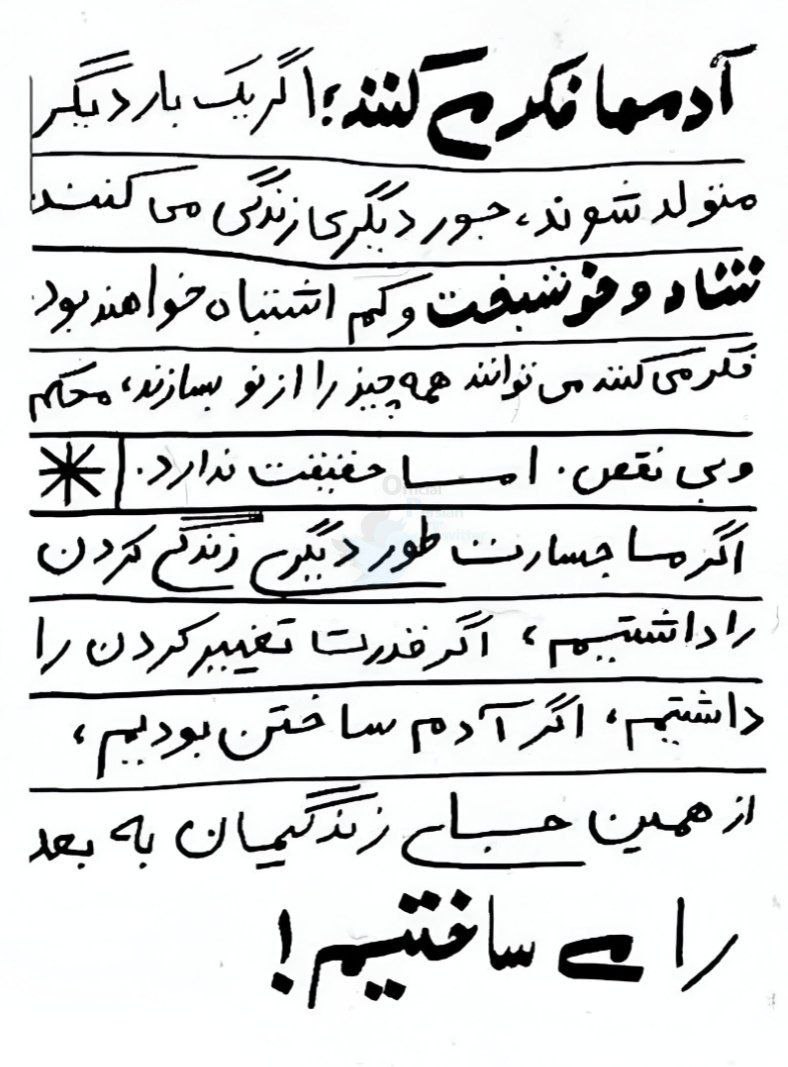 آدمها فکر می کنند؛ اگر یک بار دیگر
متولد شوند، جور دیگری زندگی می کنند
شاد و خوشبخت و کم اشتباه خواهند بود
فکر می کنند می توانند همه چیز را از نو بسازند، محکم
وبی نقص. اما حقیقت ندارد.
اگر ما جسارت طور دیگری زندگی کردن
را داشتیم، اگر قدرت تغییر کردن را
داشتیم، اگر آدم ساختن بودیم،
از همین جای زندگیمان به بعد
را می ساختیم!